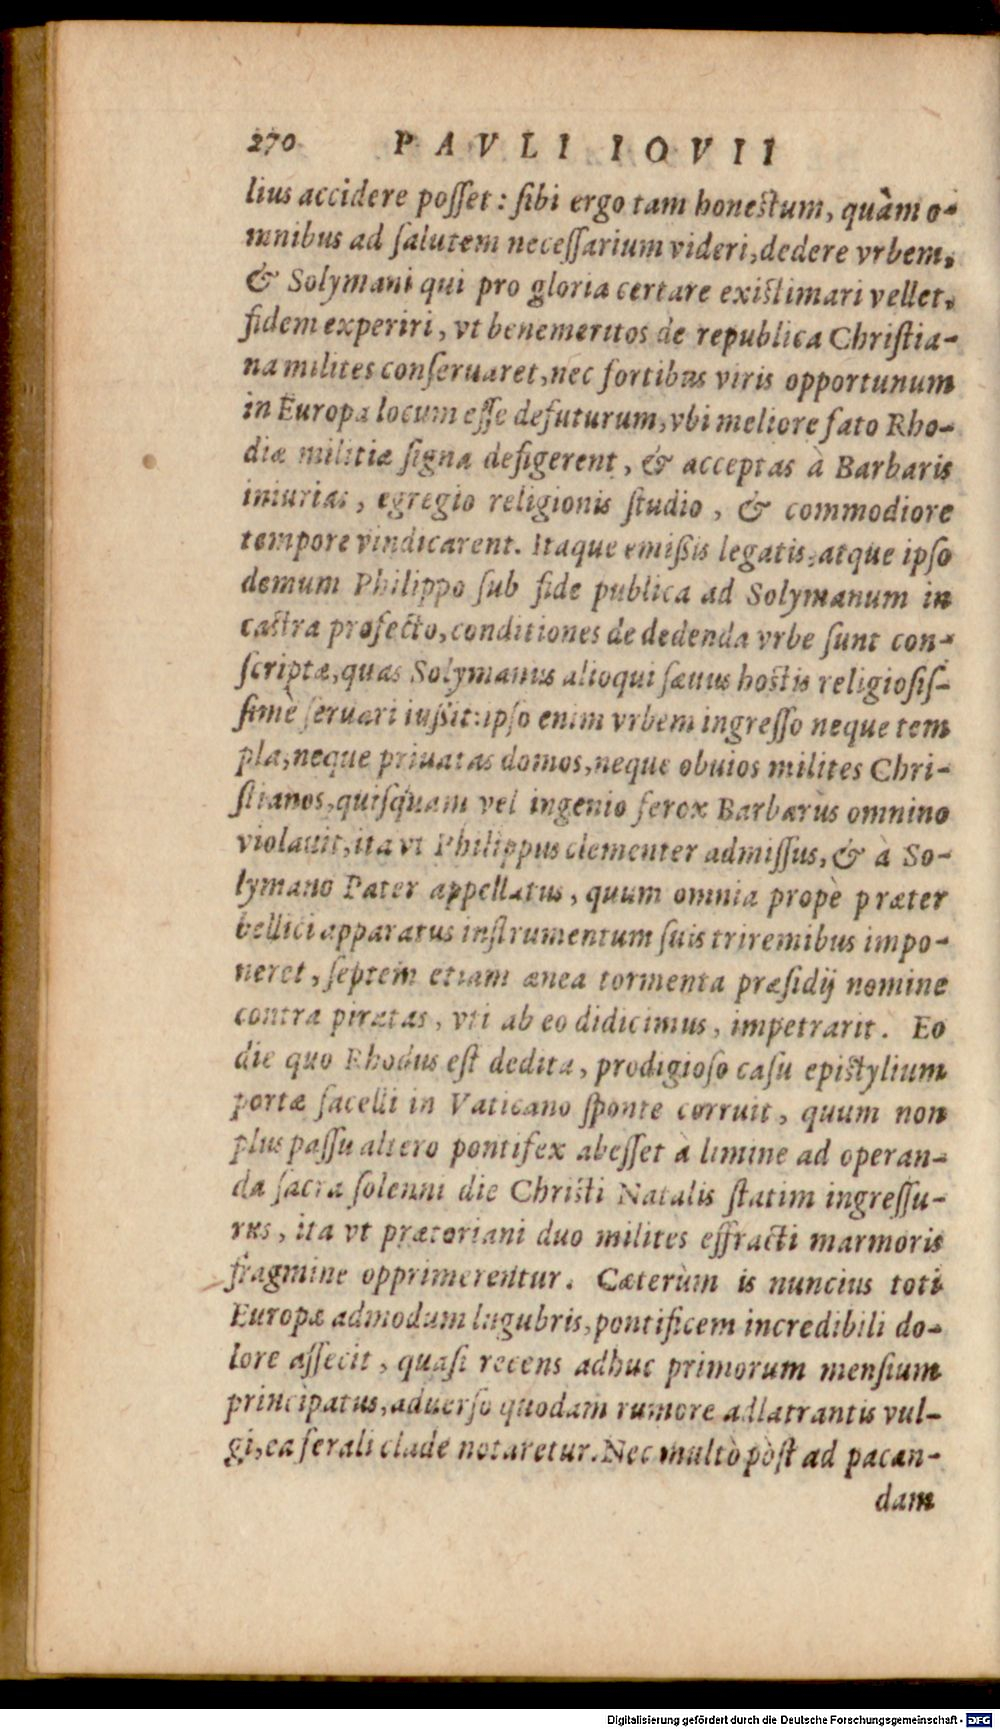 270 PAVLI IOVII
lius accidere poſſet: ſibi ergo tam honeſtum, quàm o-
mnibus ad ſalutem neceſſarium videri, dedere vrbem,
& Solymani qui pro gloria certare exiſtimari vellet,
fidem experiri, vt benemeritos de republica Chriſtia-
na milites conſeruaret, nec fortibus viris opportunum
in Europa locum eſſe defuturum, vbi meliore fato Rho-
diæ militiæ ſigna defigerent, & acceptas à Barbaris
iniurias, egregio religionis ſtudio, & commodiore
tempore vindicarent. Itaque emißis legatis, atque ipſo
demum Philippo ſub fide publica ad Solymanum in
caſtra profecto, conditiones de dedenda vrbe ſunt con-
ſcriptæ, quas Solymanus alioqui ſæuus hoſtis religioſiſ-
ſimè ſeruari iußit: ipſo enim vrbem ingreſſo neque tem
pla, neque priuatas domos, neque obuios milites Chri-
ſtianos, quiſquam vel ingenio ferox Barbarus omnino
violauit, ita vt Philippus clementer admiſſus, & à So-
lymano Pater appellatus, quum omnia propè præter
bellici apparatus inſtrumentum ſuis triremibus impo-
neret, ſeptem etiam ænea tormenta præſidij nomine
contra piratas, vti ab eo didicimus, impetrarit. Eo
die quo Rhodus eſt dedita, prodigioſo caſu epiſtylium
portæ ſacelli in Vaticano ſponte corruit, quum non
plus paſſu altero pontifex abeſſet à limine ad operan-
da ſacra ſolenni die Chriſti Natalis ſtatim ingreſſu-
rus, ita vt prætoriani duo milites effracti marmoris
fragmine opprimerentur. Cæterùm is nuncius toti
Europæ admodum lugubris, pontificem incredibili do-
lore affecit, quaſi recens adhuc primorum menſium
principatus, aduerſo quodam rumore adlatrantis vul-
gi, ea ferali clade notaretur. Nec multò pòſt ad pacan-
dam
Digitalisierung gefördert durch die Deutsche Forschungsgemeinschaft - DFG